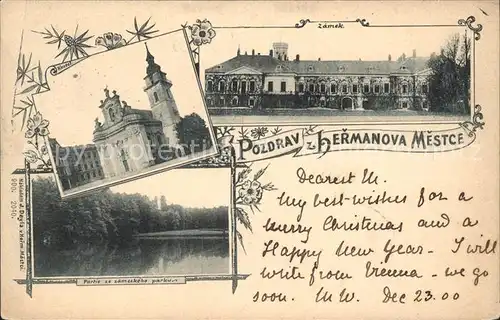 Zámek
Kostel
POZDRAV z HEŘMANOVA MĚSTCE
Partie ze zámeckého parku.
900. 2010.
Dearest M.
My best wishes for a
merry Christmas and a
Happy New Year - I will
write from Vienna - we go
soon. M.W. Dec 23.00